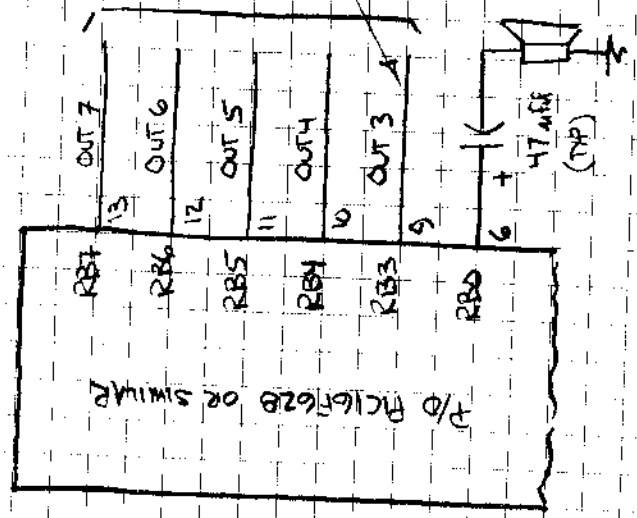 OUT 7
OUT 6
OUT 5
OUT 4
OUT 3
+
47 µF
(TYP)
13
12
11
10
9
6
RB7
RB6
RB5
RB4
RB3
RB0
P/O PIC16F628 OR SIMILAR